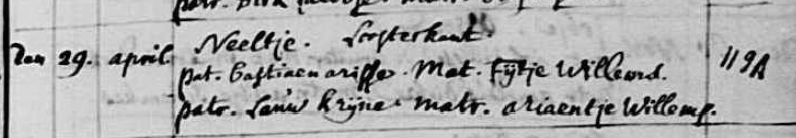 Den 29. april Neeltje. Oosterkant. 119A
pat. Bastiaen ariesse. Mat. Fijtje Willems.
patr. Lauw krijne. matr. ariaentje Willems.